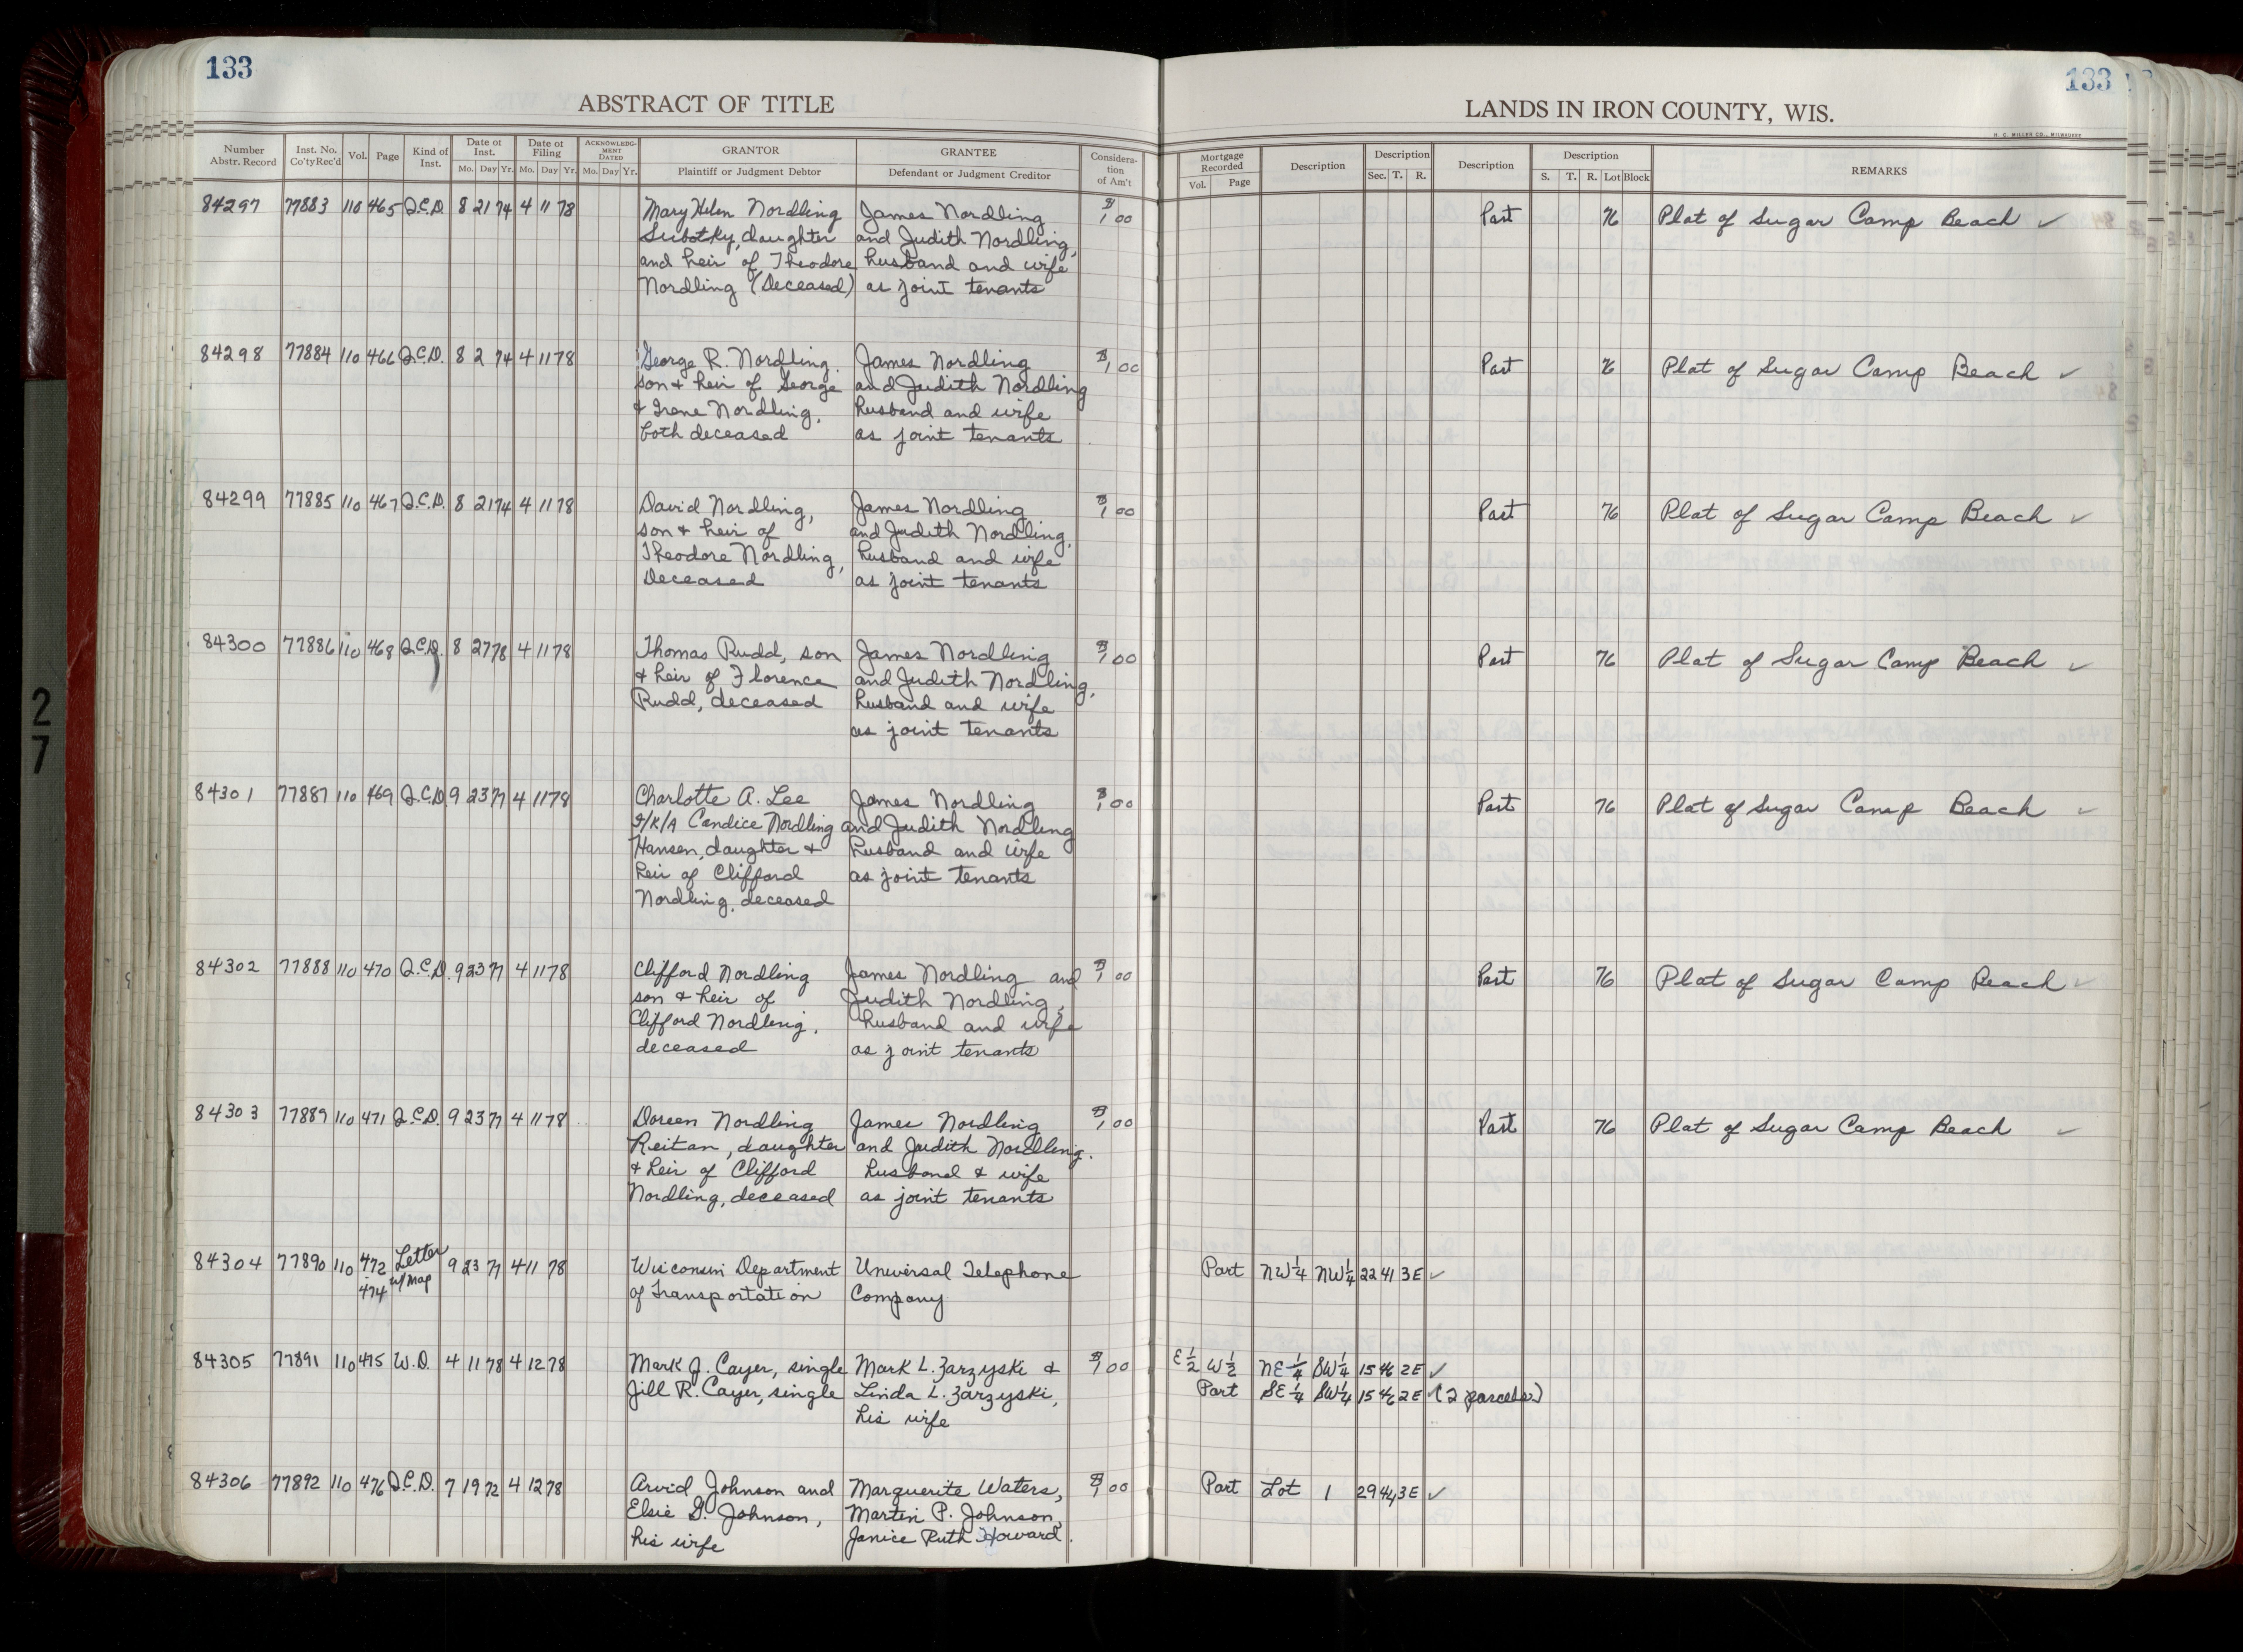 133
133
ABSTRACT OF TITLE
LANDS IN IRON COUNTY, WIS.
H. C. MILLER CO., MILWAUKEE
Number Abstr. Record Inst. No. Co'tyRec'd Vol. Page Kind of Inst. Date of Inst. Mo. Day Yr. Date of Filing Mo. Day Yr. ACKNOWLEDGMENT DATED Mo. Day Yr. GRANTOR Plaintiff or Judgment Debtor GRANTEE Defendant or Judgment Creditor Consideration of Am't Mortgage Recorded Vol. Page Description Description Sec. T. R. Description Description S. T. R. Lot Block REMARKS
84297 77883 110 465 Q.C.D. 8 21 74 4 11 78 Mary Helen Nordling James Nordling $1.00 Part 76 Plat of Sugar Camp Beach ✓
Subotky, daughter and Judith Nordling,
and heir of Theodore husband and wife
Nordling (Deceased) as joint tenants
84298 77884 110 466 Q.C.D. 8 2 74 4 11 78 George R. Nordling, James Nordling $1.00 Part 76 Plat of Sugar Camp Beach ✓
son & heir of George and Judith Nordling
& Irene Nordling, husband and wife
both deceased as joint tenants
84299 77885 110 467 Q.C.D. 8 21 74 4 11 78 David Nordling, James Nordling $1.00 Part 76 Plat of Sugar Camp Beach ✓
son & heir of and Judith Nordling,
Theodore Nordling, husband and wife
Deceased as joint tenants
84300 77886 110 468 Q.C.D. 8 27 78 4 11 78 Thomas Rudd, son James Nordling $1.00 Part 76 Plat of Sugar Camp Beach ✓
& heir of Florence and Judith Nordling,
Rudd, deceased husband and wife
as joint tenants
84301 77887 110 469 Q.C.D. 9 23 77 4 11 78 Charlotte A. Lee James Nordling $1.00 Part 76 Plat of Sugar Camp Beach ✓
F/K/A Candice Nordling and Judith Nordling
Hansen, daughter & husband and wife
heir of Clifford as joint tenants
Nordling, deceased
84302 77888 110 470 Q.C.D. 9 23 77 4 11 78 Clifford Nordling James Nordling and $1.00 Part 76 Plat of Sugar Camp Beach ✓
son & heir of Judith Nordling,
Clifford Nordling, husband and wife
deceased as joint tenants
84303 77889 110 471 Q.C.D. 9 23 77 4 11 78 Doreen Nordling James Nordling $1.00 Part 76 Plat of Sugar Camp Beach ✓
Reitan, daughter and Judith Nordling.
& heir of Clifford husband & wife
Nordling, deceased as joint tenants
84304 77890 110 472-474 Letter w/ Map 9 23 77 4 11 78 Wisconsin Department Universal Telephone Part NW¼ NW¼ 22 41 3E ✓
of Transportation Company
84305 77891 110 475 W.D. 4 11 78 4 12 78 Mark J. Cayer, single Mark L. Zarzyski & $1.00 E½ W½ NE¼ SW¼ 15 46 2E ✓
Jill R. Cayer, single Linda L. Zarzyski, Part SE¼ SW¼ 15 46 2E ✓ (2 parcels)
his wife
84306 77892 110 476 Q.C.D. 7 19 72 4 12 78 Arvid Johnson and Marguerite Waters, $1.00 Part Lot 1 29 44 3E ✓
Elsie G. Johnson, Martin P. Johnson,
his wife Janice Ruth Howard.
27